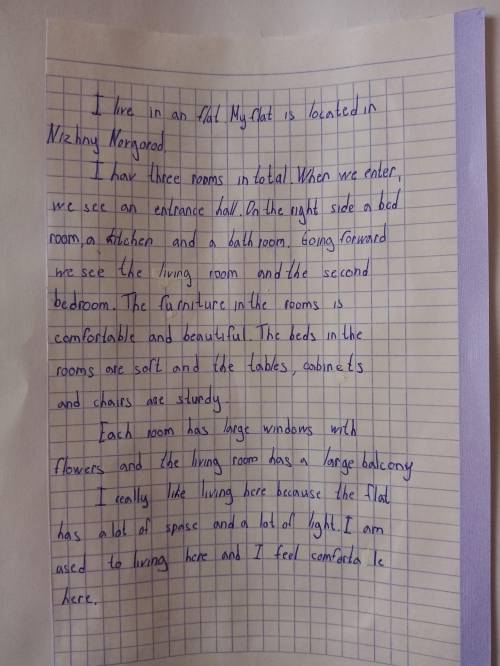 I live in an flat. My flat is located in
Nizhny Norgorod.
I hav three rooms in total. When we enter,
we see an entrance hall. On the right side a bed
room, a kitchen and a bath room. Going forward
we see the living room and the second
bedroom. The furniture in the rooms is
comfortable and beautiful. The beds in the
rooms are soft and the tables, cabinets
and chairs are sturdy.
Each room has large windows with
flowers and the living room has a large balcony
I really like living here because the flat
has a lot of spase and a lot of light. I am
used to living here and I feel comforta le
here.